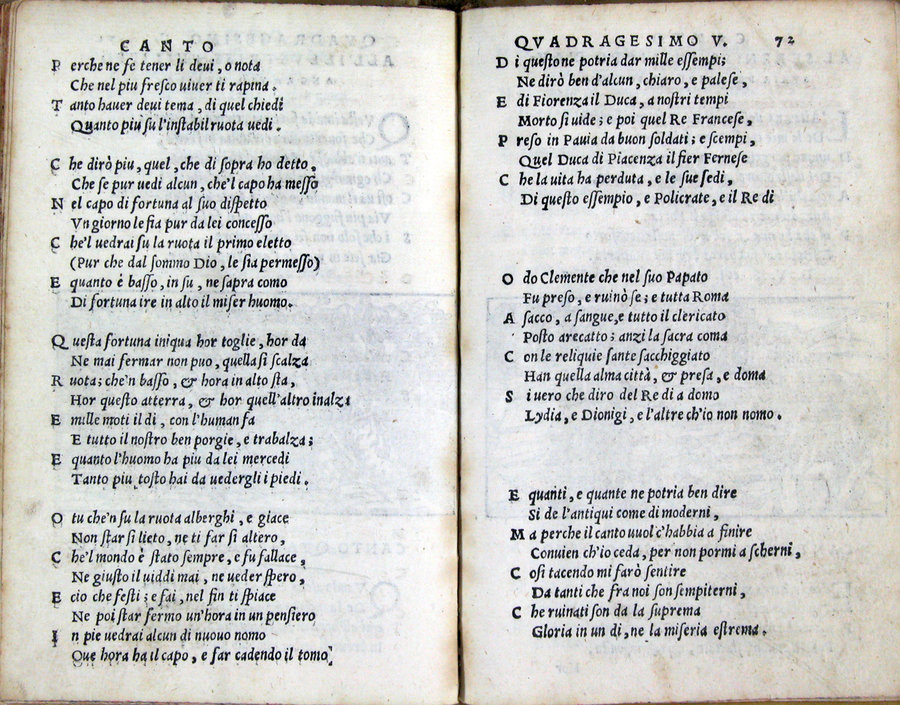 CANTO
Perche ne se tener li deui, o nota
Che nel piu fresco uiuer ti rapina.
Tanto hauer deui tema, di quel chiedi
Quanto piu su l'instabil ruota uedi.
Che dirò piu, quel, che di sopra ho detto,
Che se pur uedi alcun, che'l capo ha messo
Nel capo di fortuna al suo dispetto
Vn giorno le fia pur da lei concesso
Che'l uedrai su la ruota il primo eletto
(Pur che dal sommo Dio, le sia permesso)
E quanto è basso, in su, ne sapra como
Di fortuna ire in alto il miser huomo.
Questa fortuna iniqua hor toglie, hor da
Ne mai fermar non puo, quella si scalza
Ruota; che'n basso, & hora in alto sta,
Hor questo atterra, & hor quell'altro inalza
E mille moti il di, con l'human fa
E tutto il nostro ben porgie, e trabalza;
E quanto l'huomo ha piu da lei mercedi
Tanto piu tosto hai da uedergli i piedi.
O tu che'n su la ruota alberghi, e giace
Non star si lieto, ne ti far si altero,
Che'l mondo è stato sempre, e fu fallace,
Ne giusto il uiddi mai, ne ueder spero,
E cio che festi; e fai, nel fin ti spiace
Ne poi star fermo un'hora in un pensiero
In pie uedrai alcun di nuouo nomo
Que hora ha il capo, e far cadendo il tomo,
QVADRAGESIMO V. 72
Di questo ne potria dar mille essempi;
Ne dirò ben d'alcun, chiaro, e palese,
E di Fiorenza il Duca, a nostri tempi
Morto si uide; e poi quel Re Francese,
Preso in Pauia da buon soldati; e scempi,
Quel Duca di Piacenza il fier Fernese
Che la uita ha perduta, e le sue sedi,
Di questo essempio, e Policrate, e il Re di
Odo Clemente che nel suo Papato
Fu preso, e ruinò se; e tutta Roma
A sacco, a sangue, e tutto il clericato
Posto arecatto; anzi la sacra coma
Con le reliquie sante sacchiggiato
Han quella alma città, & presa, e doma
Si uero che diro del Re di a domo
Lydia, e Dionigi, e l'altre ch'io non nomo.
E quanti, e quante ne potria ben dire
Si de l'antiqui come di moderni,
Ma perche il canto uuol c'habbia a finire
Conuien ch'io ceda, per non pormi a scherni,
Cosi tacendo mi farò sentire
Da tanti che fra noi son sempiterni,
Che ruinati son da la suprema
Gloria in un di, ne la miseria estrema.